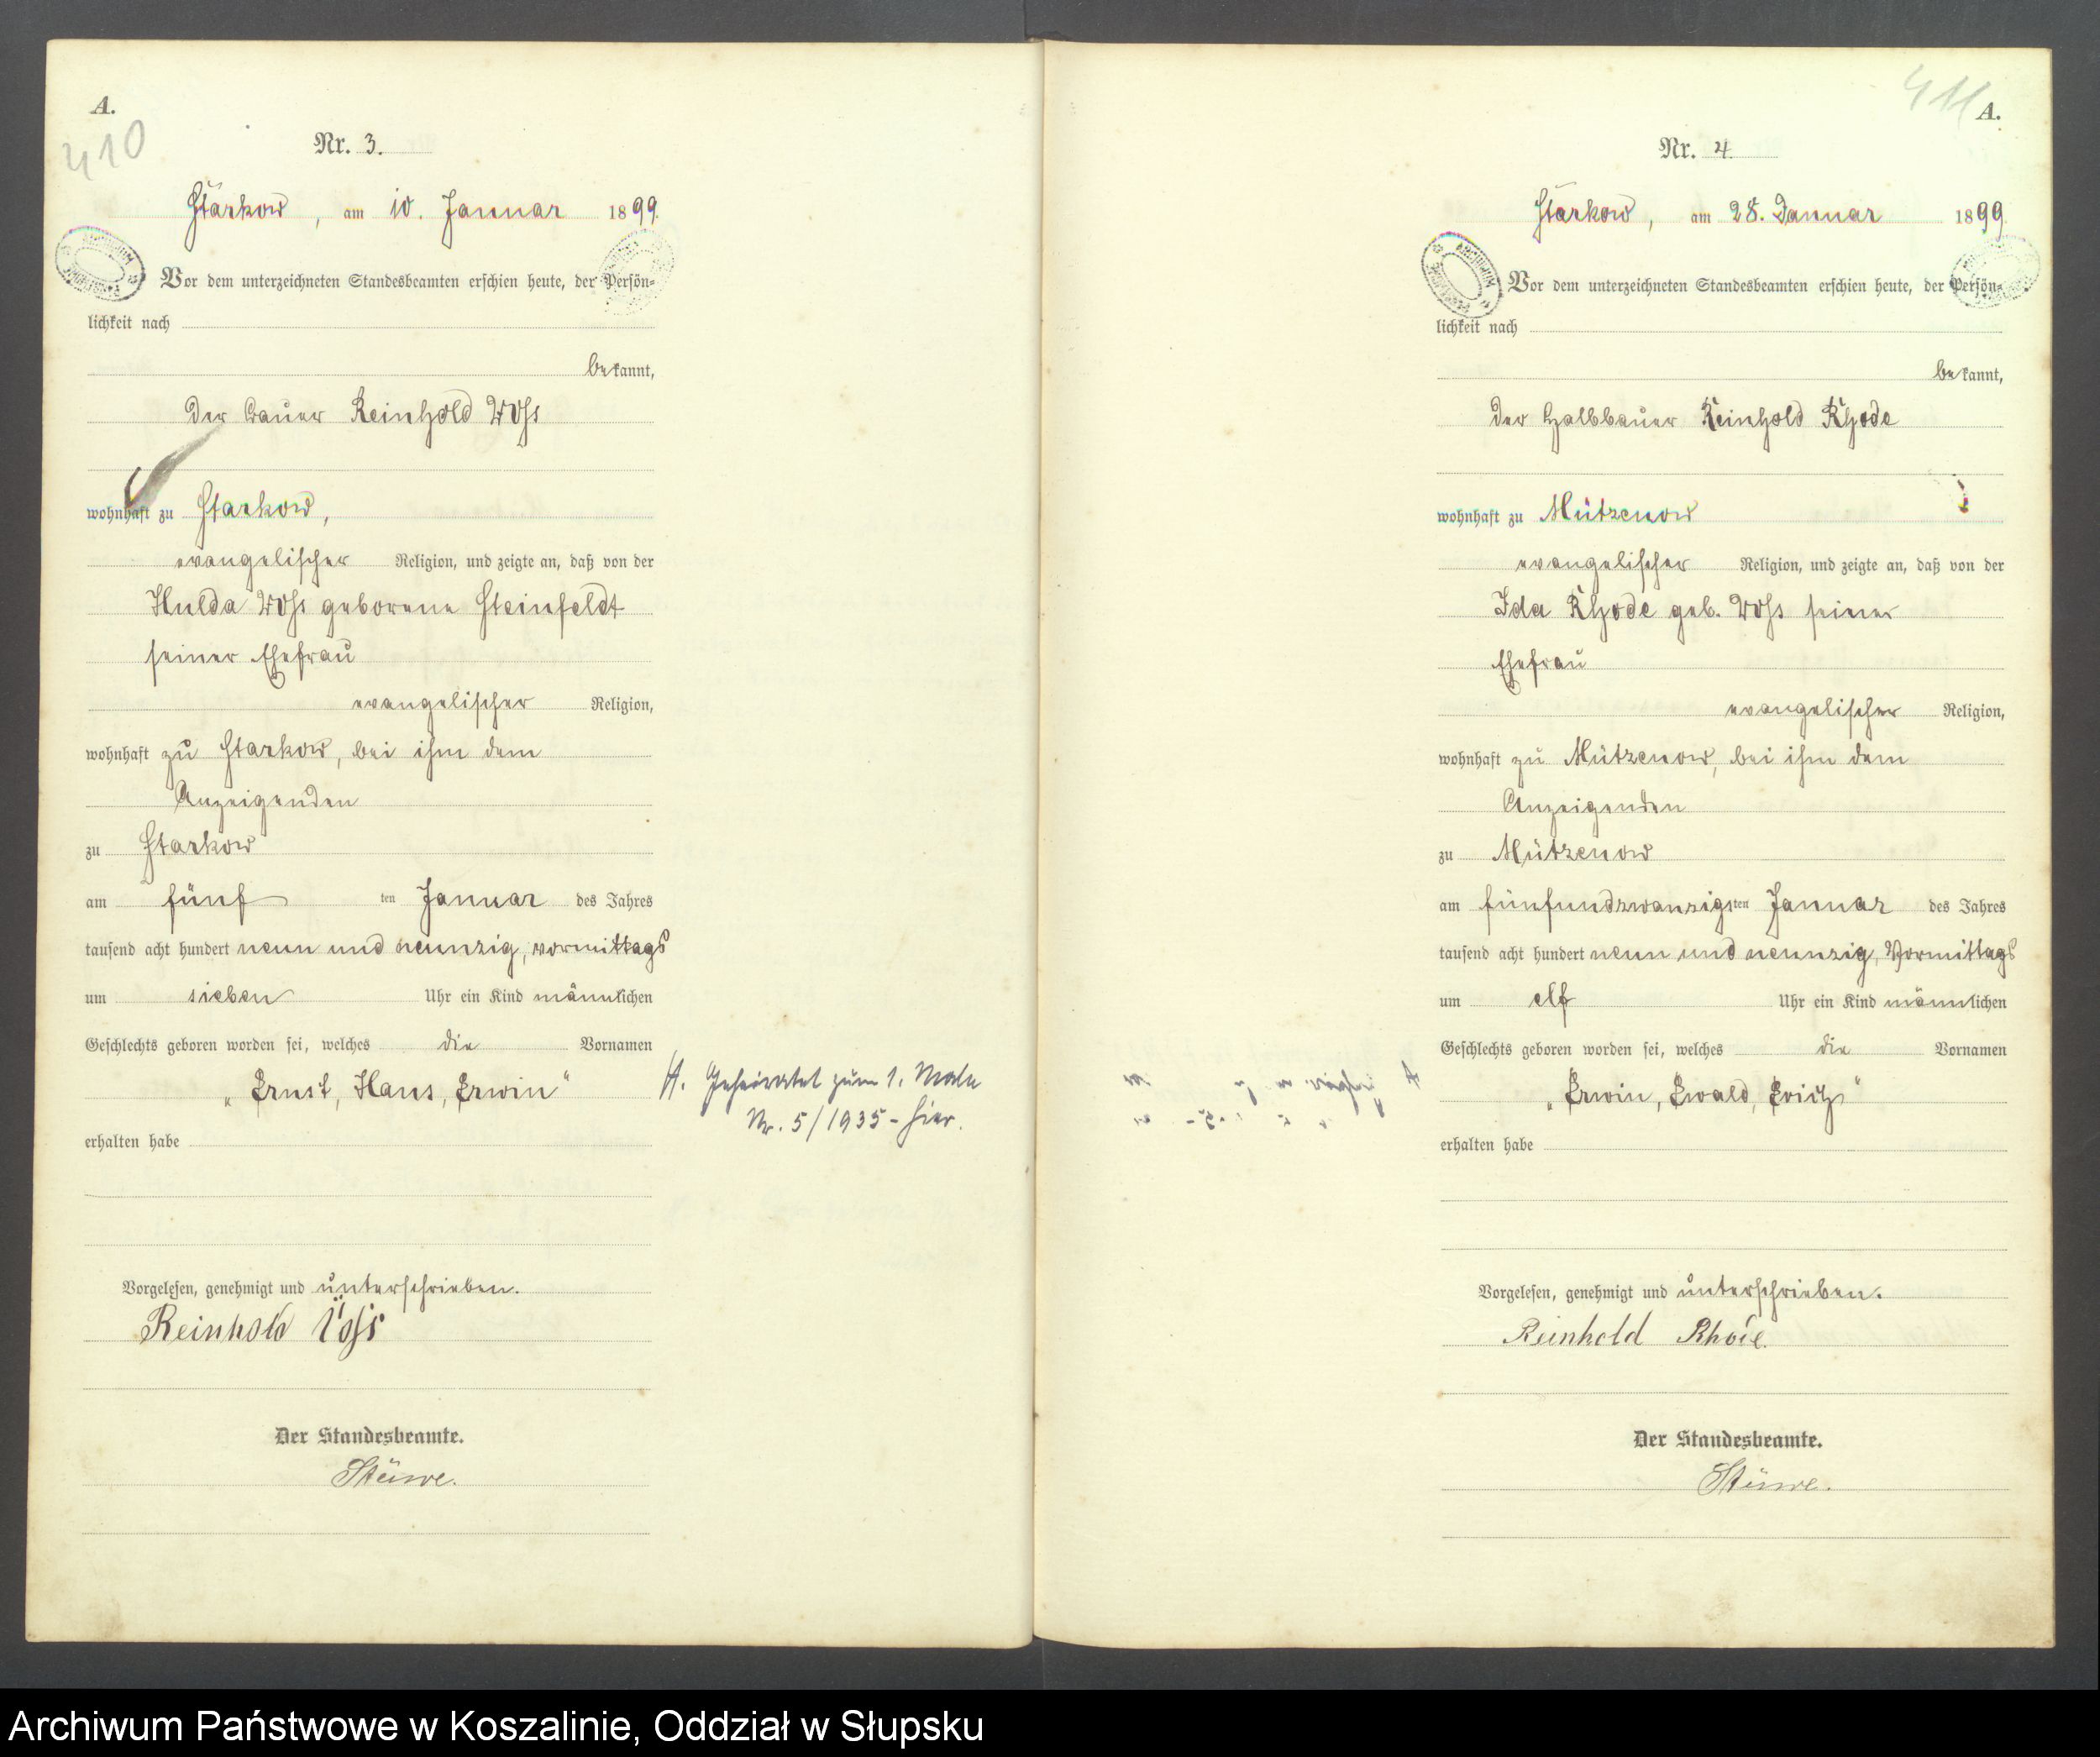 A.
410
Nr. 3.
Starkow, am 10. Januar 1899.
Vor dem unterzeichneten Standesbeamten erschien heute, der Persön-
lichkeit nach
bekannt,
der Bauer Reinhold Voß
wohnhaft zu Starkow,
evangelischer Religion, und zeigte an, daß von der
Hulda Voß geborene Steinfeldt
seiner Ehefrau
evangelischer Religion,
wohnhaft zu Starkow, bei ihm dem
Anzeigenden
zu Starkow
am fünf ten Januar des Jahres
tausend acht hundert neun und neunzig, vormittags
um sieben Uhr ein Kind männlichen
Geschlechts geboren worden sei, welches die Vornamen
„Ernst, Hans, Erwin"
erhalten habe
Vorgelesen, genehmigt und unterschrieben.
Reinhold Voß
Der Standesbeamte.
Stüwe.
H. Geheiratet zum 1. Male
Nr. 5/1935 - hier.
411
A.
Nr. 4
Starkow, am 28. Januar 1899
Vor dem unterzeichneten Standesbeamten erschien heute, der Persön-
lichkeit nach
bekannt,
der Halbbauer Reinhold Rhode
wohnhaft zu Mützenow
evangelischer Religion, und zeigte an, daß von der
Ida Rhode geb. Voß seiner
Ehefrau
evangelischer Religion,
wohnhaft zu Mützenow, bei ihm dem
Anzeigenden
zu Mützenow
am fünfundzwanzigsten Januar des Jahres
tausend acht hundert neun und neunzig, Vormittags
um elf Uhr ein Kind männlichen
Geschlechts geboren worden sei, welches die Vornamen
„Erwin, Ewald, Erich"
erhalten habe
Vorgelesen, genehmigt und unterschrieben.
Reinhold Rhode.
Der Standesbeamte.
Stüwe.
Archiwum Państwowe w Koszalinie, Oddział w Słupsku